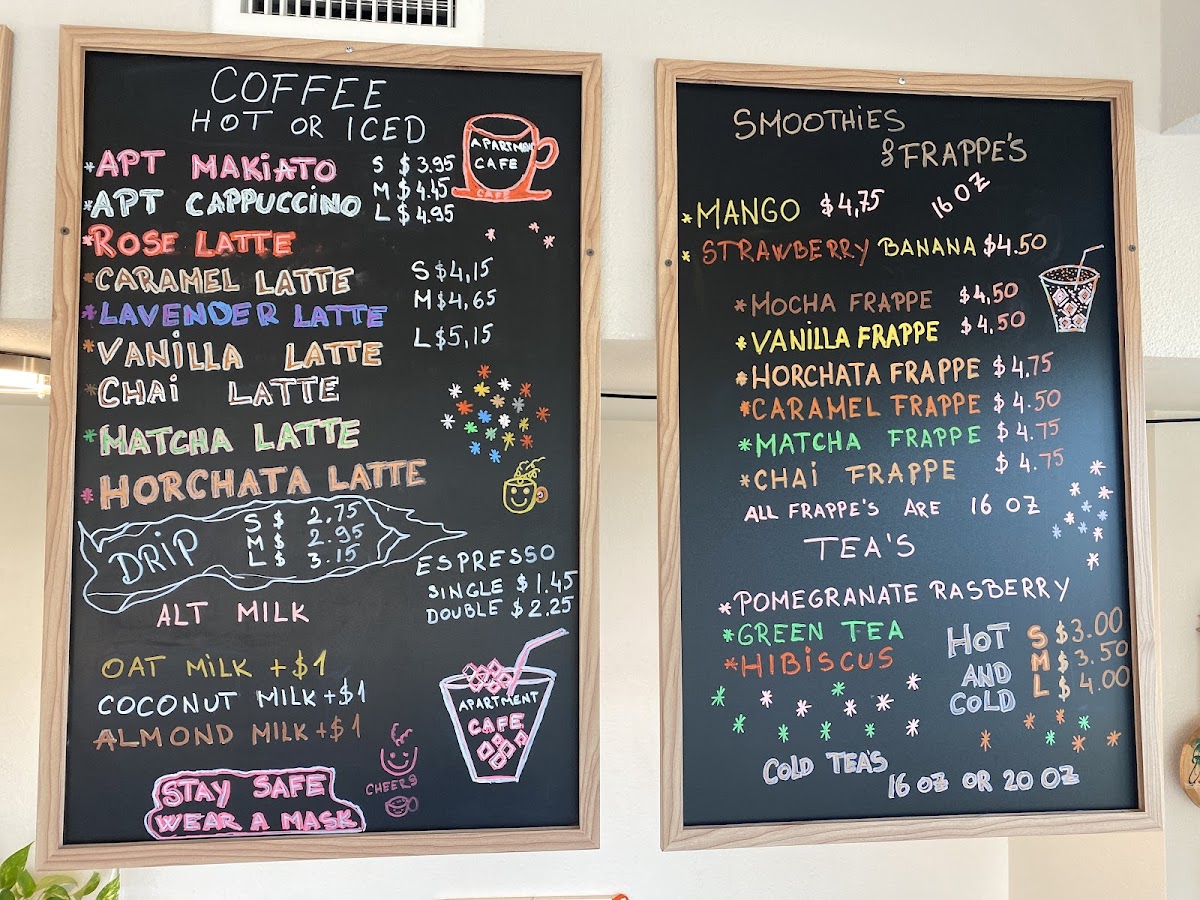 COFFEE
HOT OR ICED
APARTMENT
CAFE
CAFE
*APT MAKiATO S $3.95
*APT CAPPUCCiNO M $4.45
L $4.95
*ROSE LATTE
*CARAMEL LATTE S $4,15
*LAVENDER LATTE M $4,65
*VANiLLA LATTE L $5,15
*CHAi LATTE
*MATCHA LATTE
*HORCHATA LATTE
DRiP
S $ 2.75
M $ 2.95
L $ 3.15
ESPRESSO
SINGLE $1.45
DOUBLE $2.25
ALT MILK
OAT MiLK +$1
COCONUT MILK +$1
ALMOND MILK +$1
APARTMENT
CAFE
CHEERS
STAY SAFE
WEAR A MASK
SMOOTHiES
& FRAPPE'S
*MANGO $4,75 16 OZ
*STRAWBERRY BANANA $4.50
*MOCHA FRAPPE $4,50
*VANiLLA FRAPPE $4.50
*HORCHATA FRAPPE $4.75
*CARAMEL FRAPPE $4.50
*MATCHA FRAPPE $4.75
*CHAi FRAPPE $4.75
ALL FRAPPE'S ARE 16 OZ
TEA'S
*POMEGRANATE RASBERRY
*GREEN TEA
*HIBiSCUS
HOT
AND
COLD
S $3.00
M $3.50
L $4.00
COLD TEA'S
16 OZ OR 20 OZ